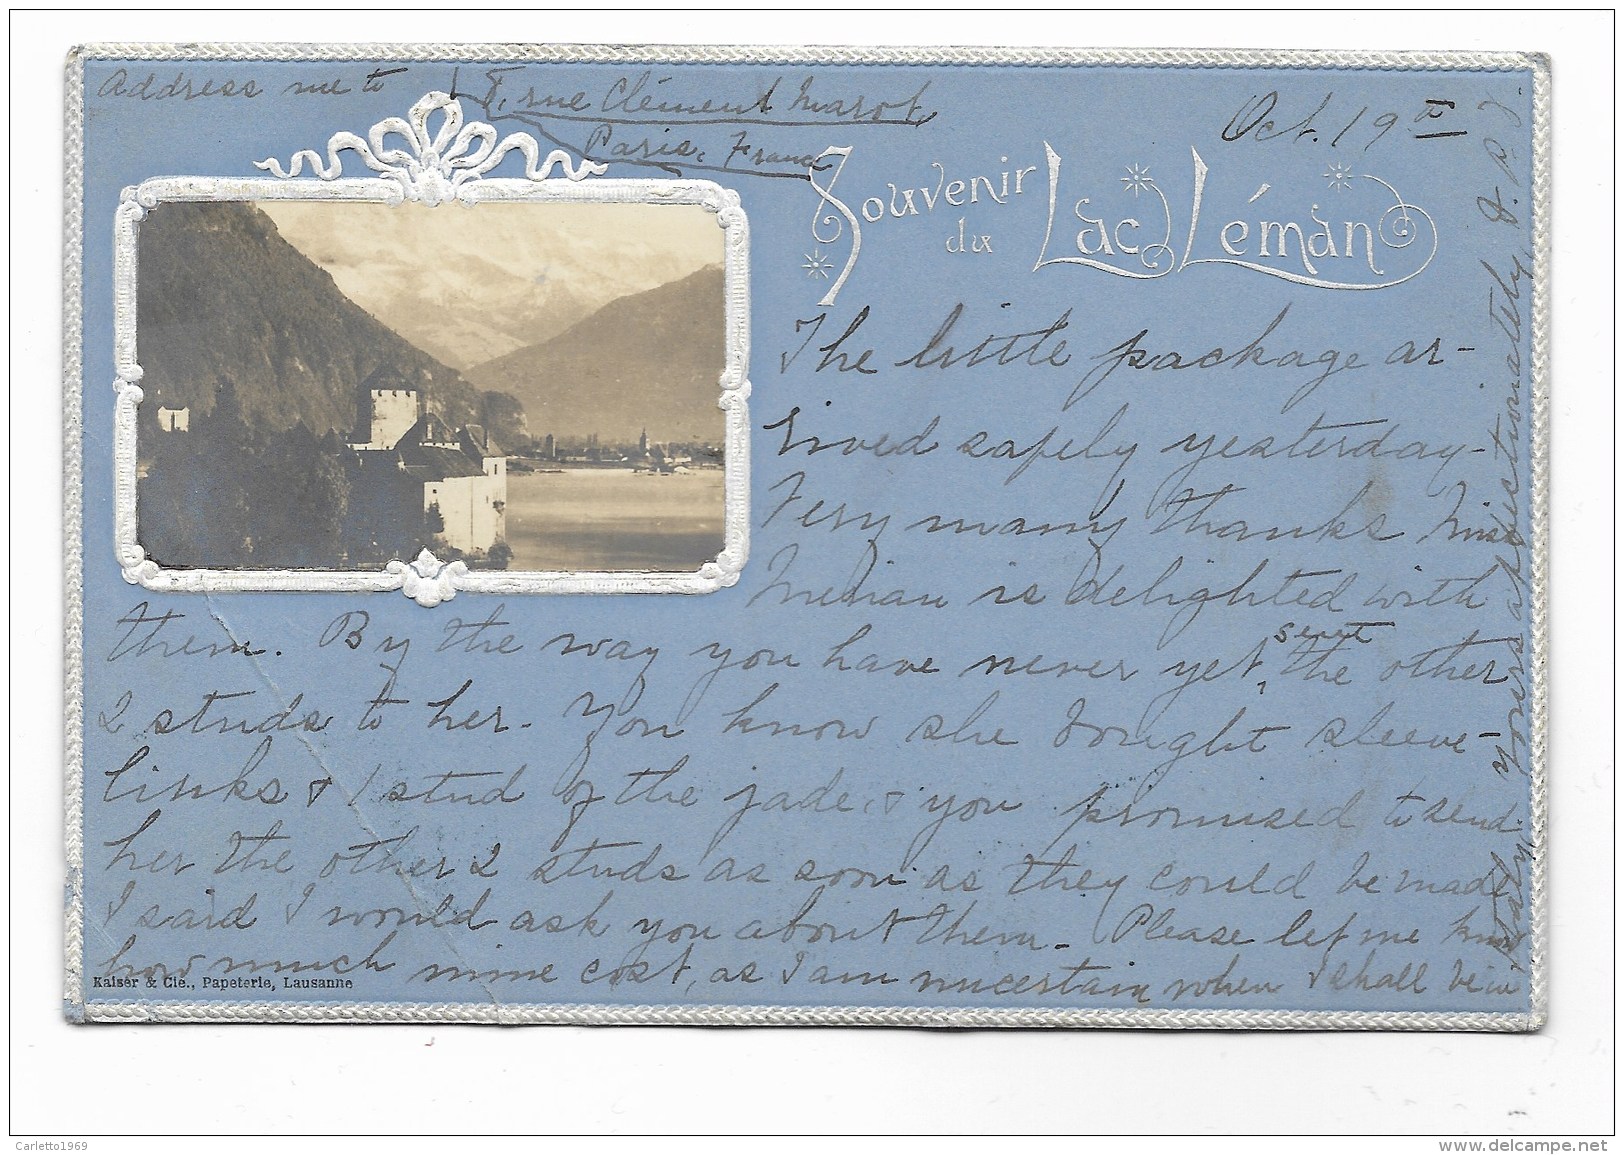 Address me to 7, rue Clément Marot,
Paris, France
Oct. 19th
Souvenir
du Lac Léman
The little package ar-
rived safely yesterday-
Very many thanks Miss
is delighted with
them. By the way you have never yet sent the other
2 studs to her. You know she bought sleeve-
links & 1 stud of the jade, & you promised to send
her the other 2 studs as soon as they could be made
I said I would ask you about them- Please let me know
how much mine cost, as I am uncertain when I shall be in
Italy. Yours affectionately,
Kaiser & Cie., Papeterie, Lausanne
Carletto1969
www.delcampe.net